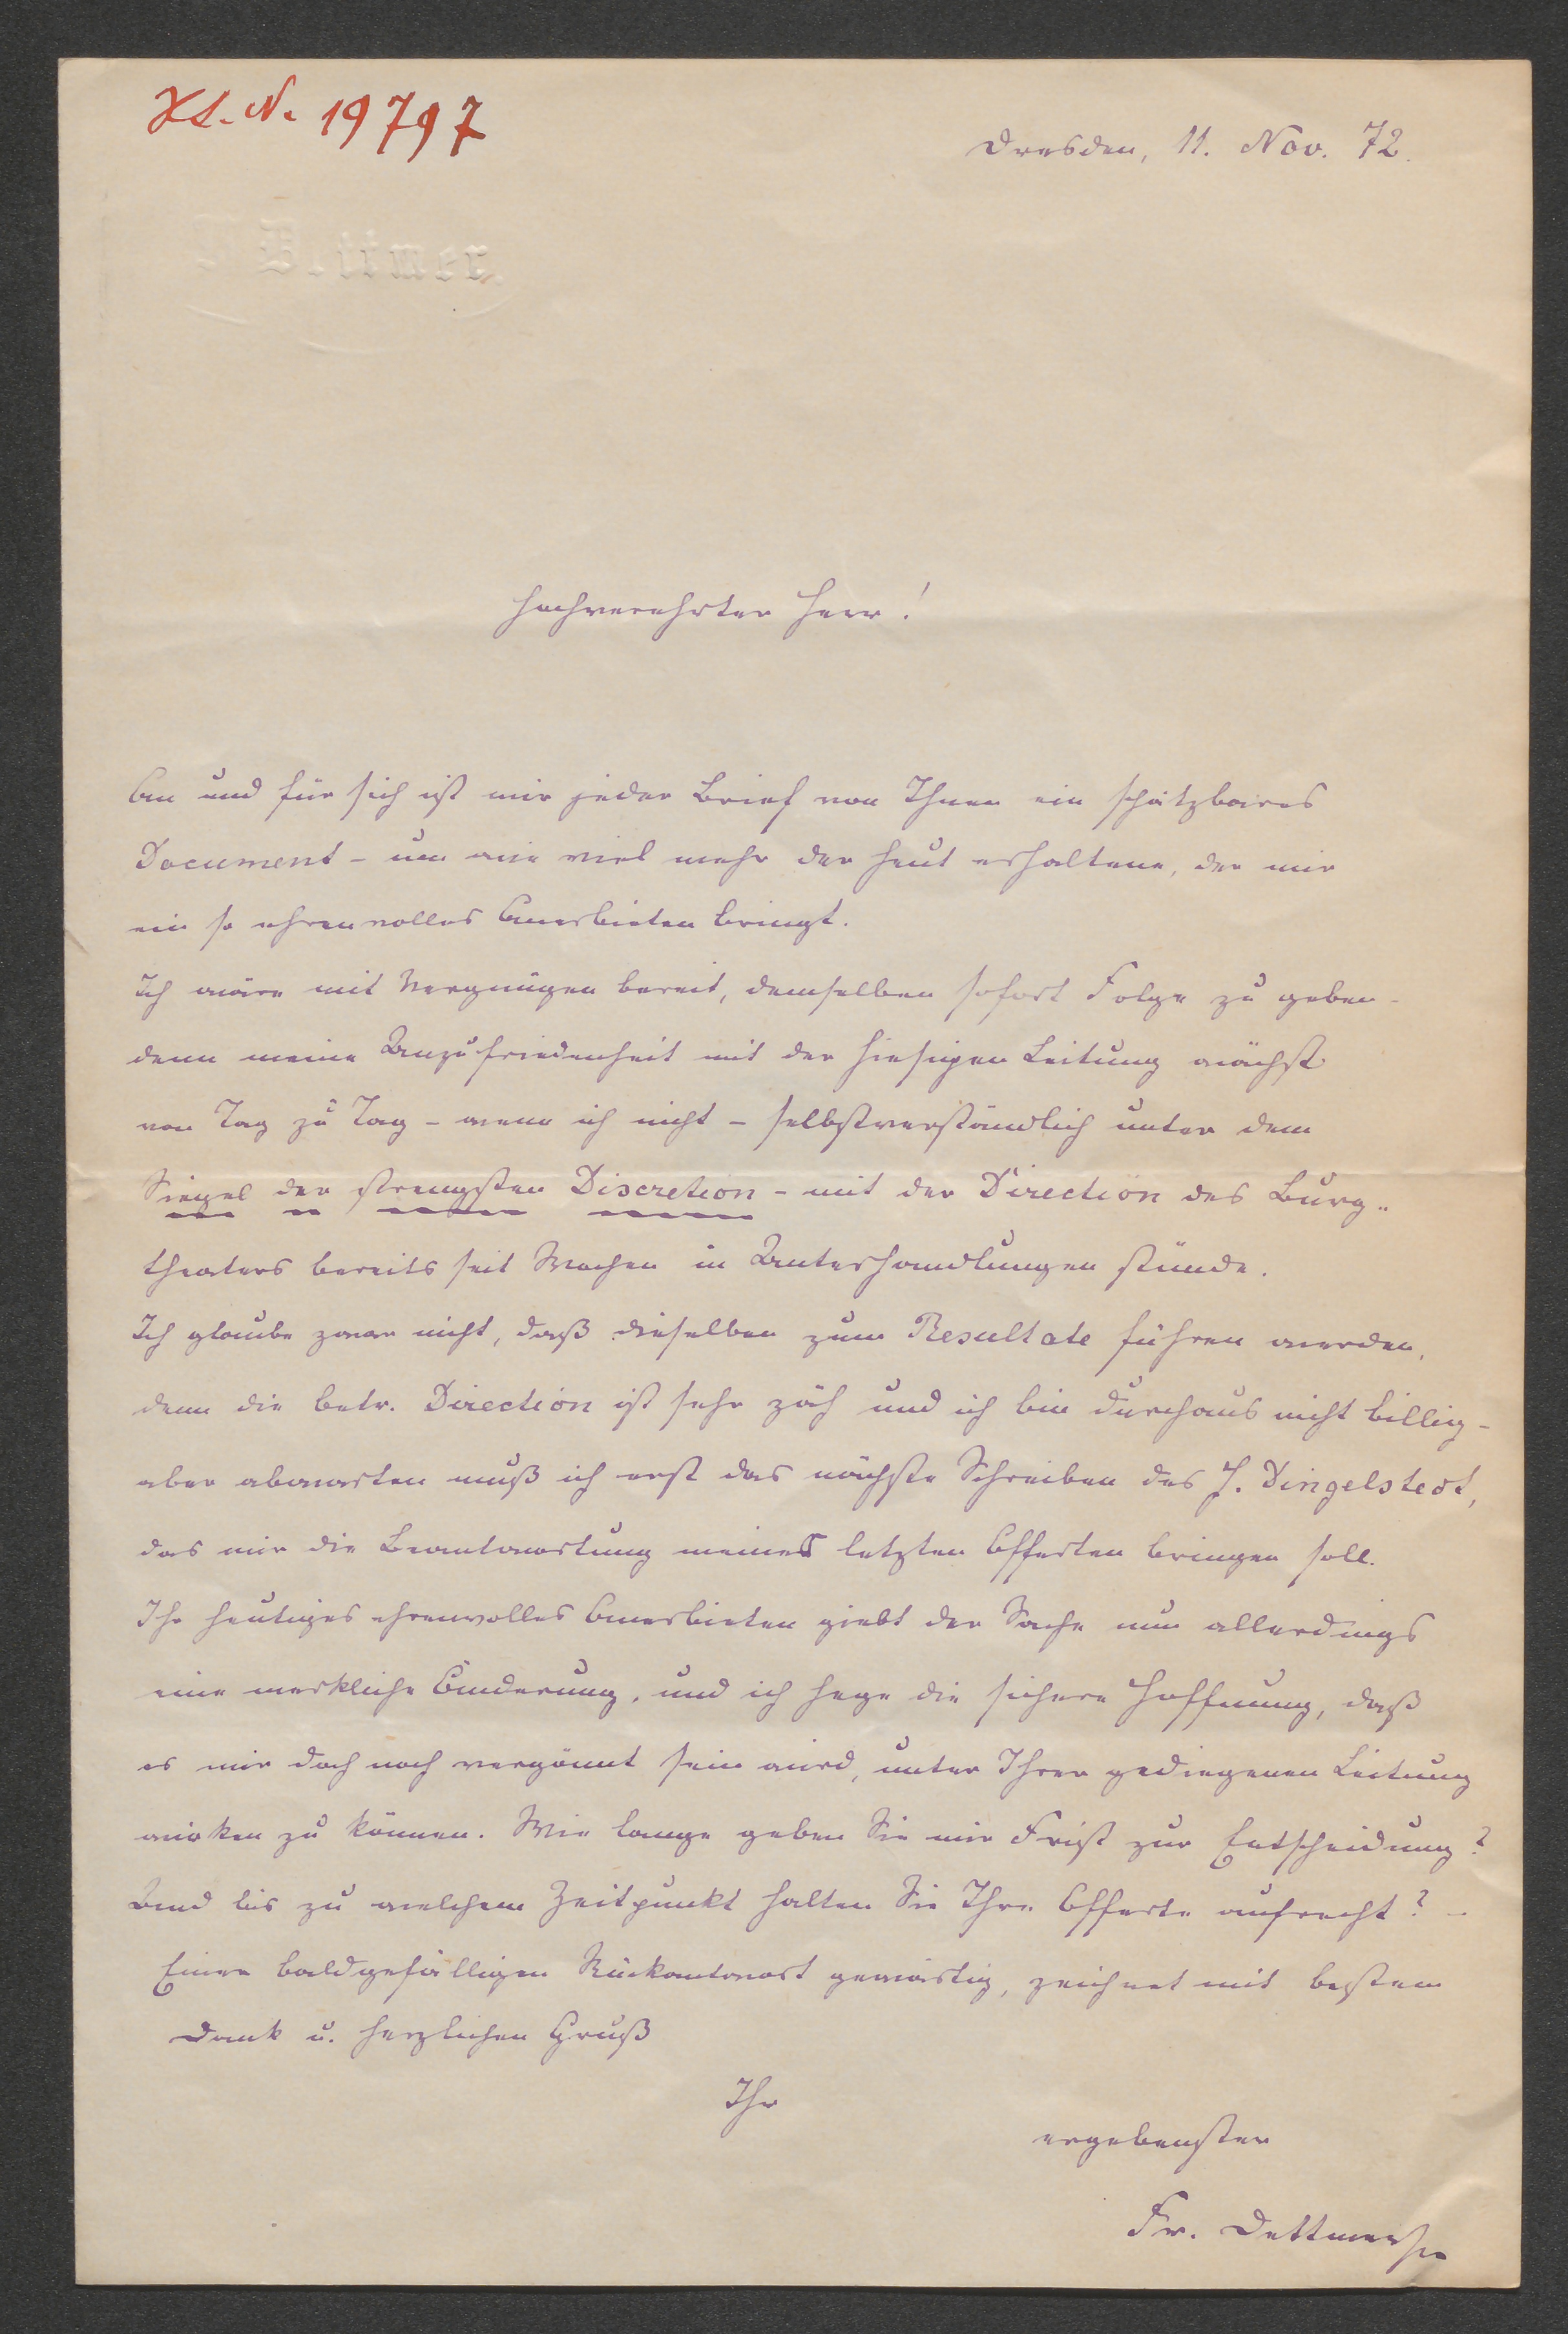 H. I. N. 19797
Dresden, 11. Nov. 72.
Dettmer
Hochverehrter Herr!
An und für sich ist mir jeder Brief von Ihnen ein schätzbares
Document - um wie viel mehr der heut erhaltene, der mir
ein so ehrenvolles Anerbieten bringt.
Ich wäre mit Vergnügen bereit, demselben sofort Folge zu geben -
denn meine Unzufriedenheit mit der hiesigen Leitung wächst
von Tag zu Tag - wenn ich nicht - selbstverständlich unter dem
Siegel der strengsten Discretion - mit der Direction des Burg-
theaters bereits seit Wochen in Unterhandlungen stünde.
Ich glaube zwar nicht, daß dieselben zum Resultate führen werden,
denn die betr. Direction ist sehr zäh und ich bin durchaus nicht billig -
aber abwarten muß ich erst das nächste Schreiben des H. Dingelstedt,
das mir die Beantwortung meines letzten Offerten bringen soll.
Ihr heutiges ehrenvolles Anerbieten giebt der Sache nun allerdings
eine merkliche Änderung, und ich hege die sichere Hoffnung, daß
es mir doch noch vergönnt sein wird, unter Ihrer gediegenen Leitung
wirken zu können. Wie lange geben Sie mir Frist zur Entscheidung?
Und bis zu welchem Zeitpunkt halten Sie Ihre Offerte aufrecht? -
Einer baldgefälligen Rückantwort gewärtig, zeichnet mit bestem
Dank u. herzlichen Gruß
Ihr
ergebenster
Fr. Dettmer